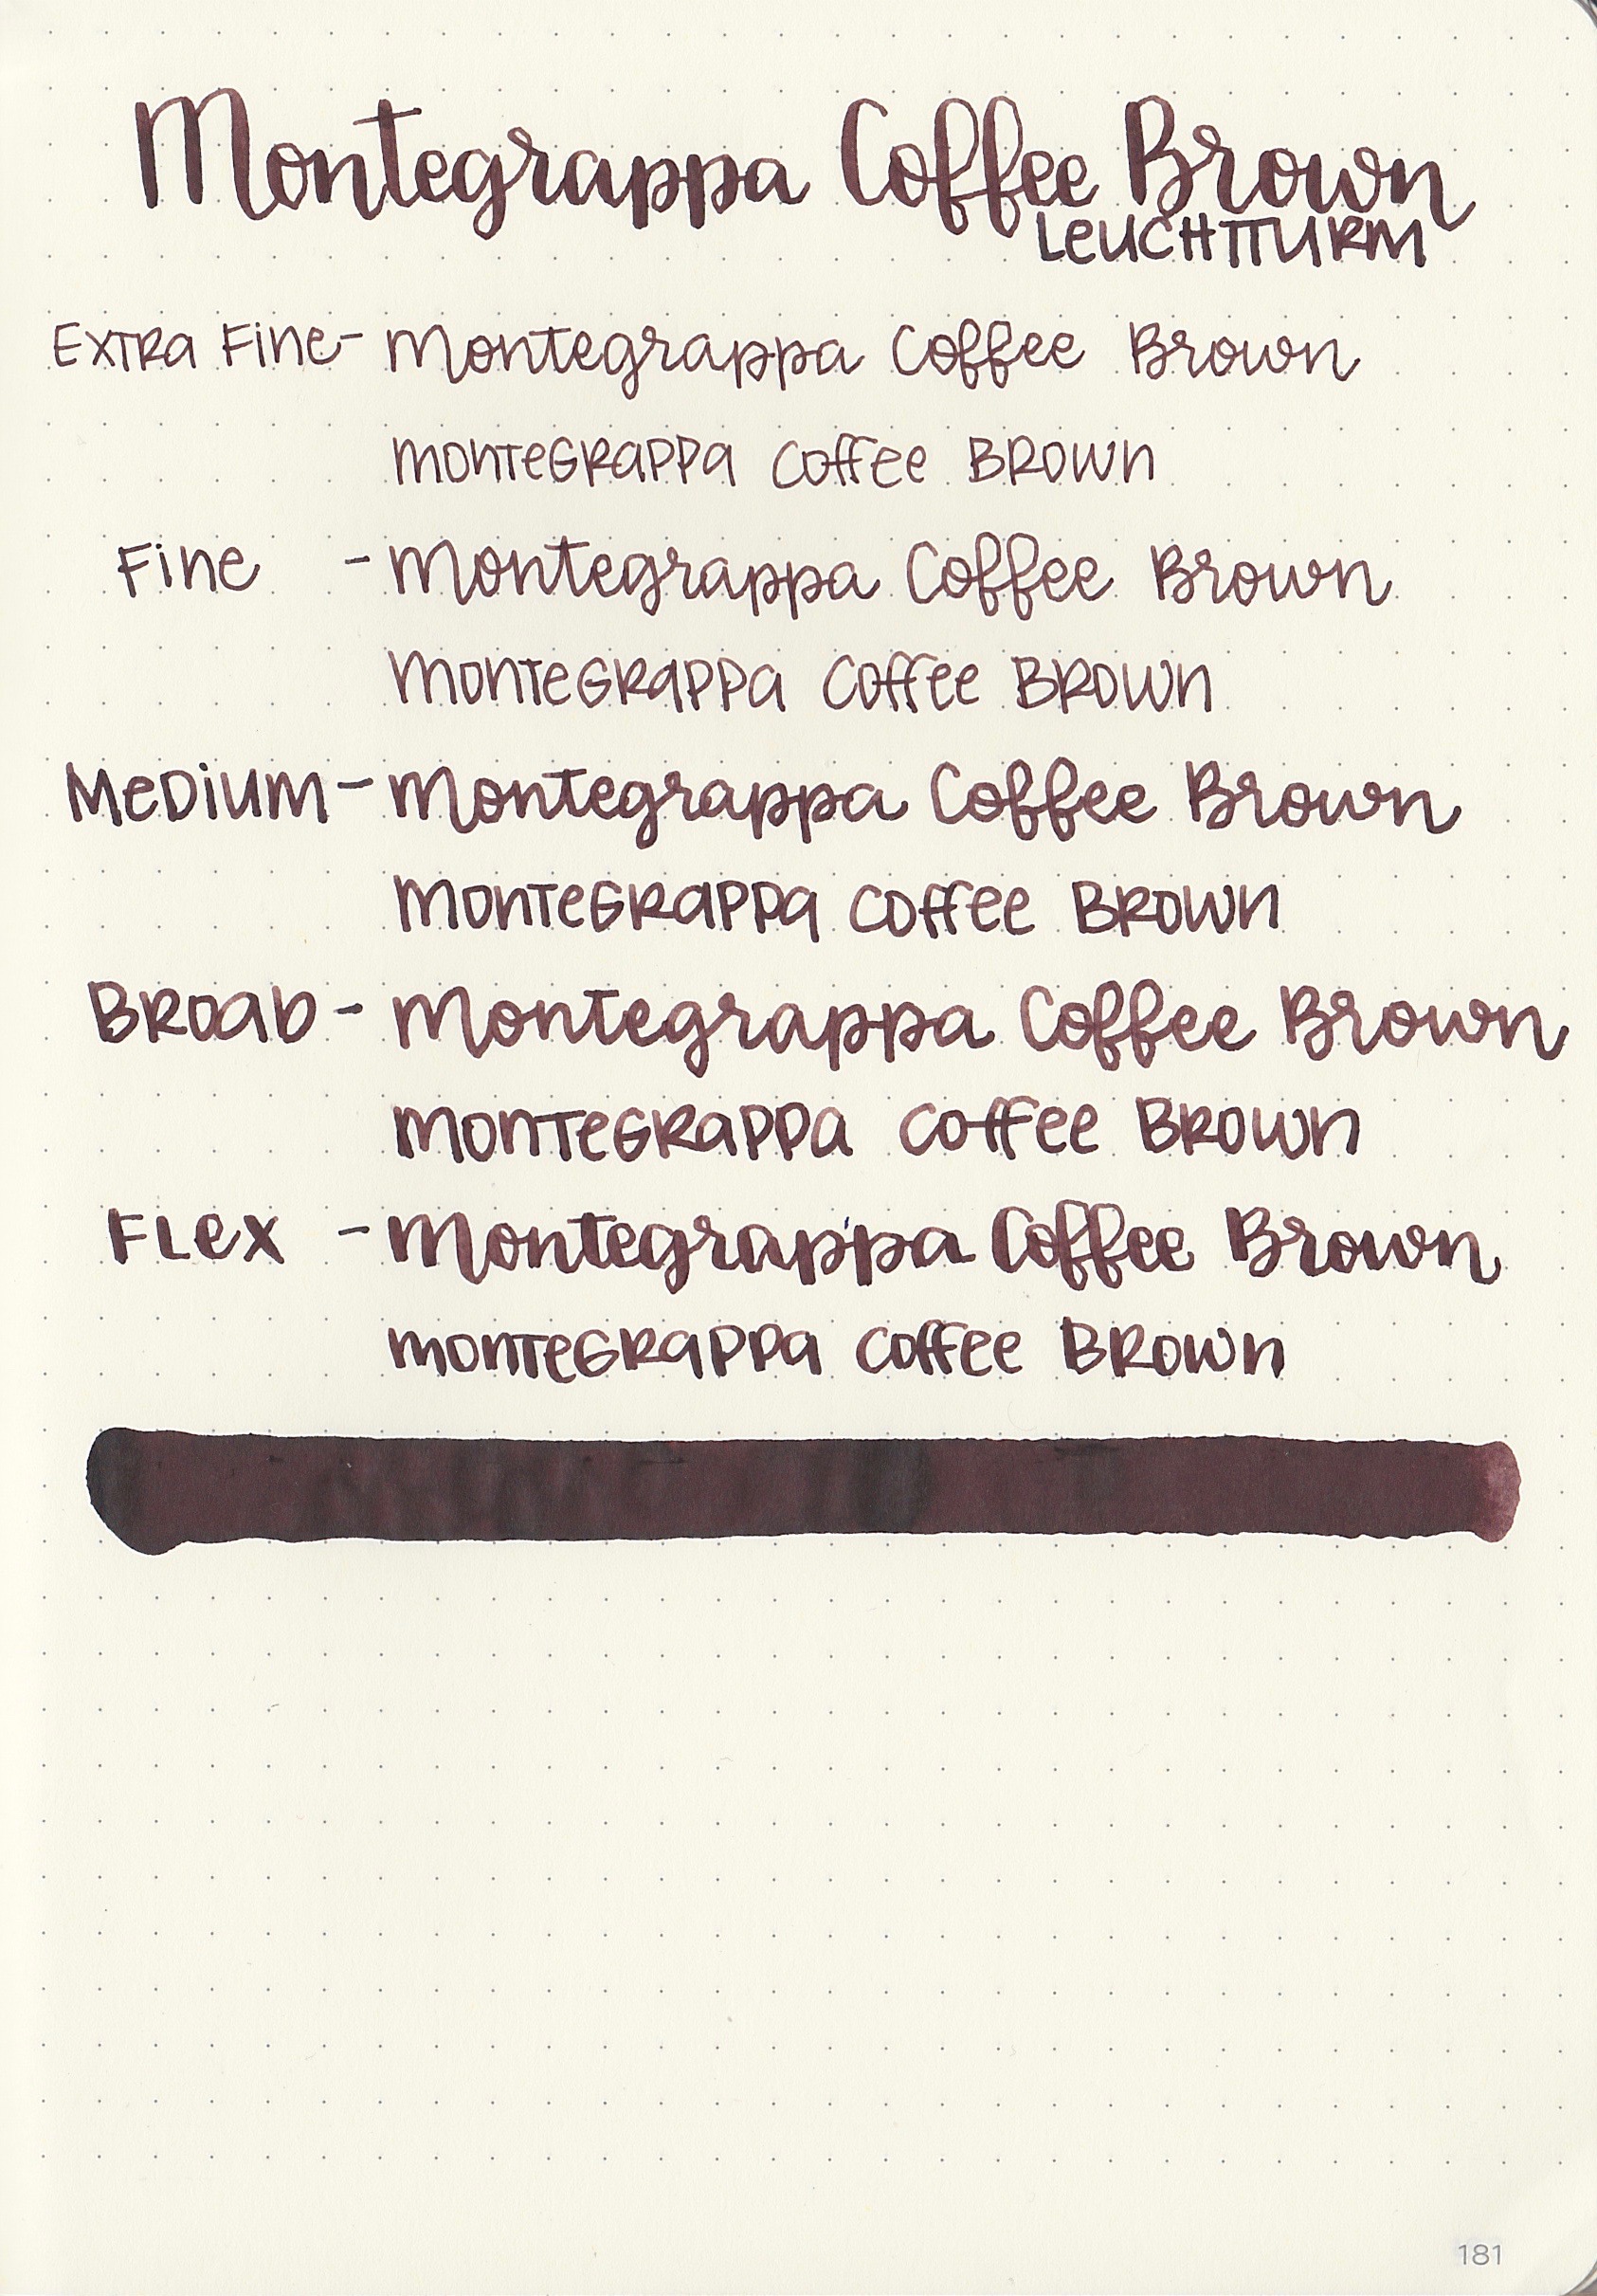 Montegrappa Coffee Brown
LEUCHTTURM
EXTRA FiNe- Montegrappa Coffee Brown
MONTEGRAPPA COFFEE BROWN
FiNe - Montegrappa Coffee Brown
MONTEGRAPPA COFFEE BROWN
MEDiUM - Montegrappa Coffee Brown
MONTEGRAPPA COFFEE BROWN
BROAD - Montegrappa Coffee Brown
MONTEGRAPPA COFFEE BROWN
FLEX - Montegrappa Coffee Brown
MONTEGRAPPA COFFEE BROWN
181